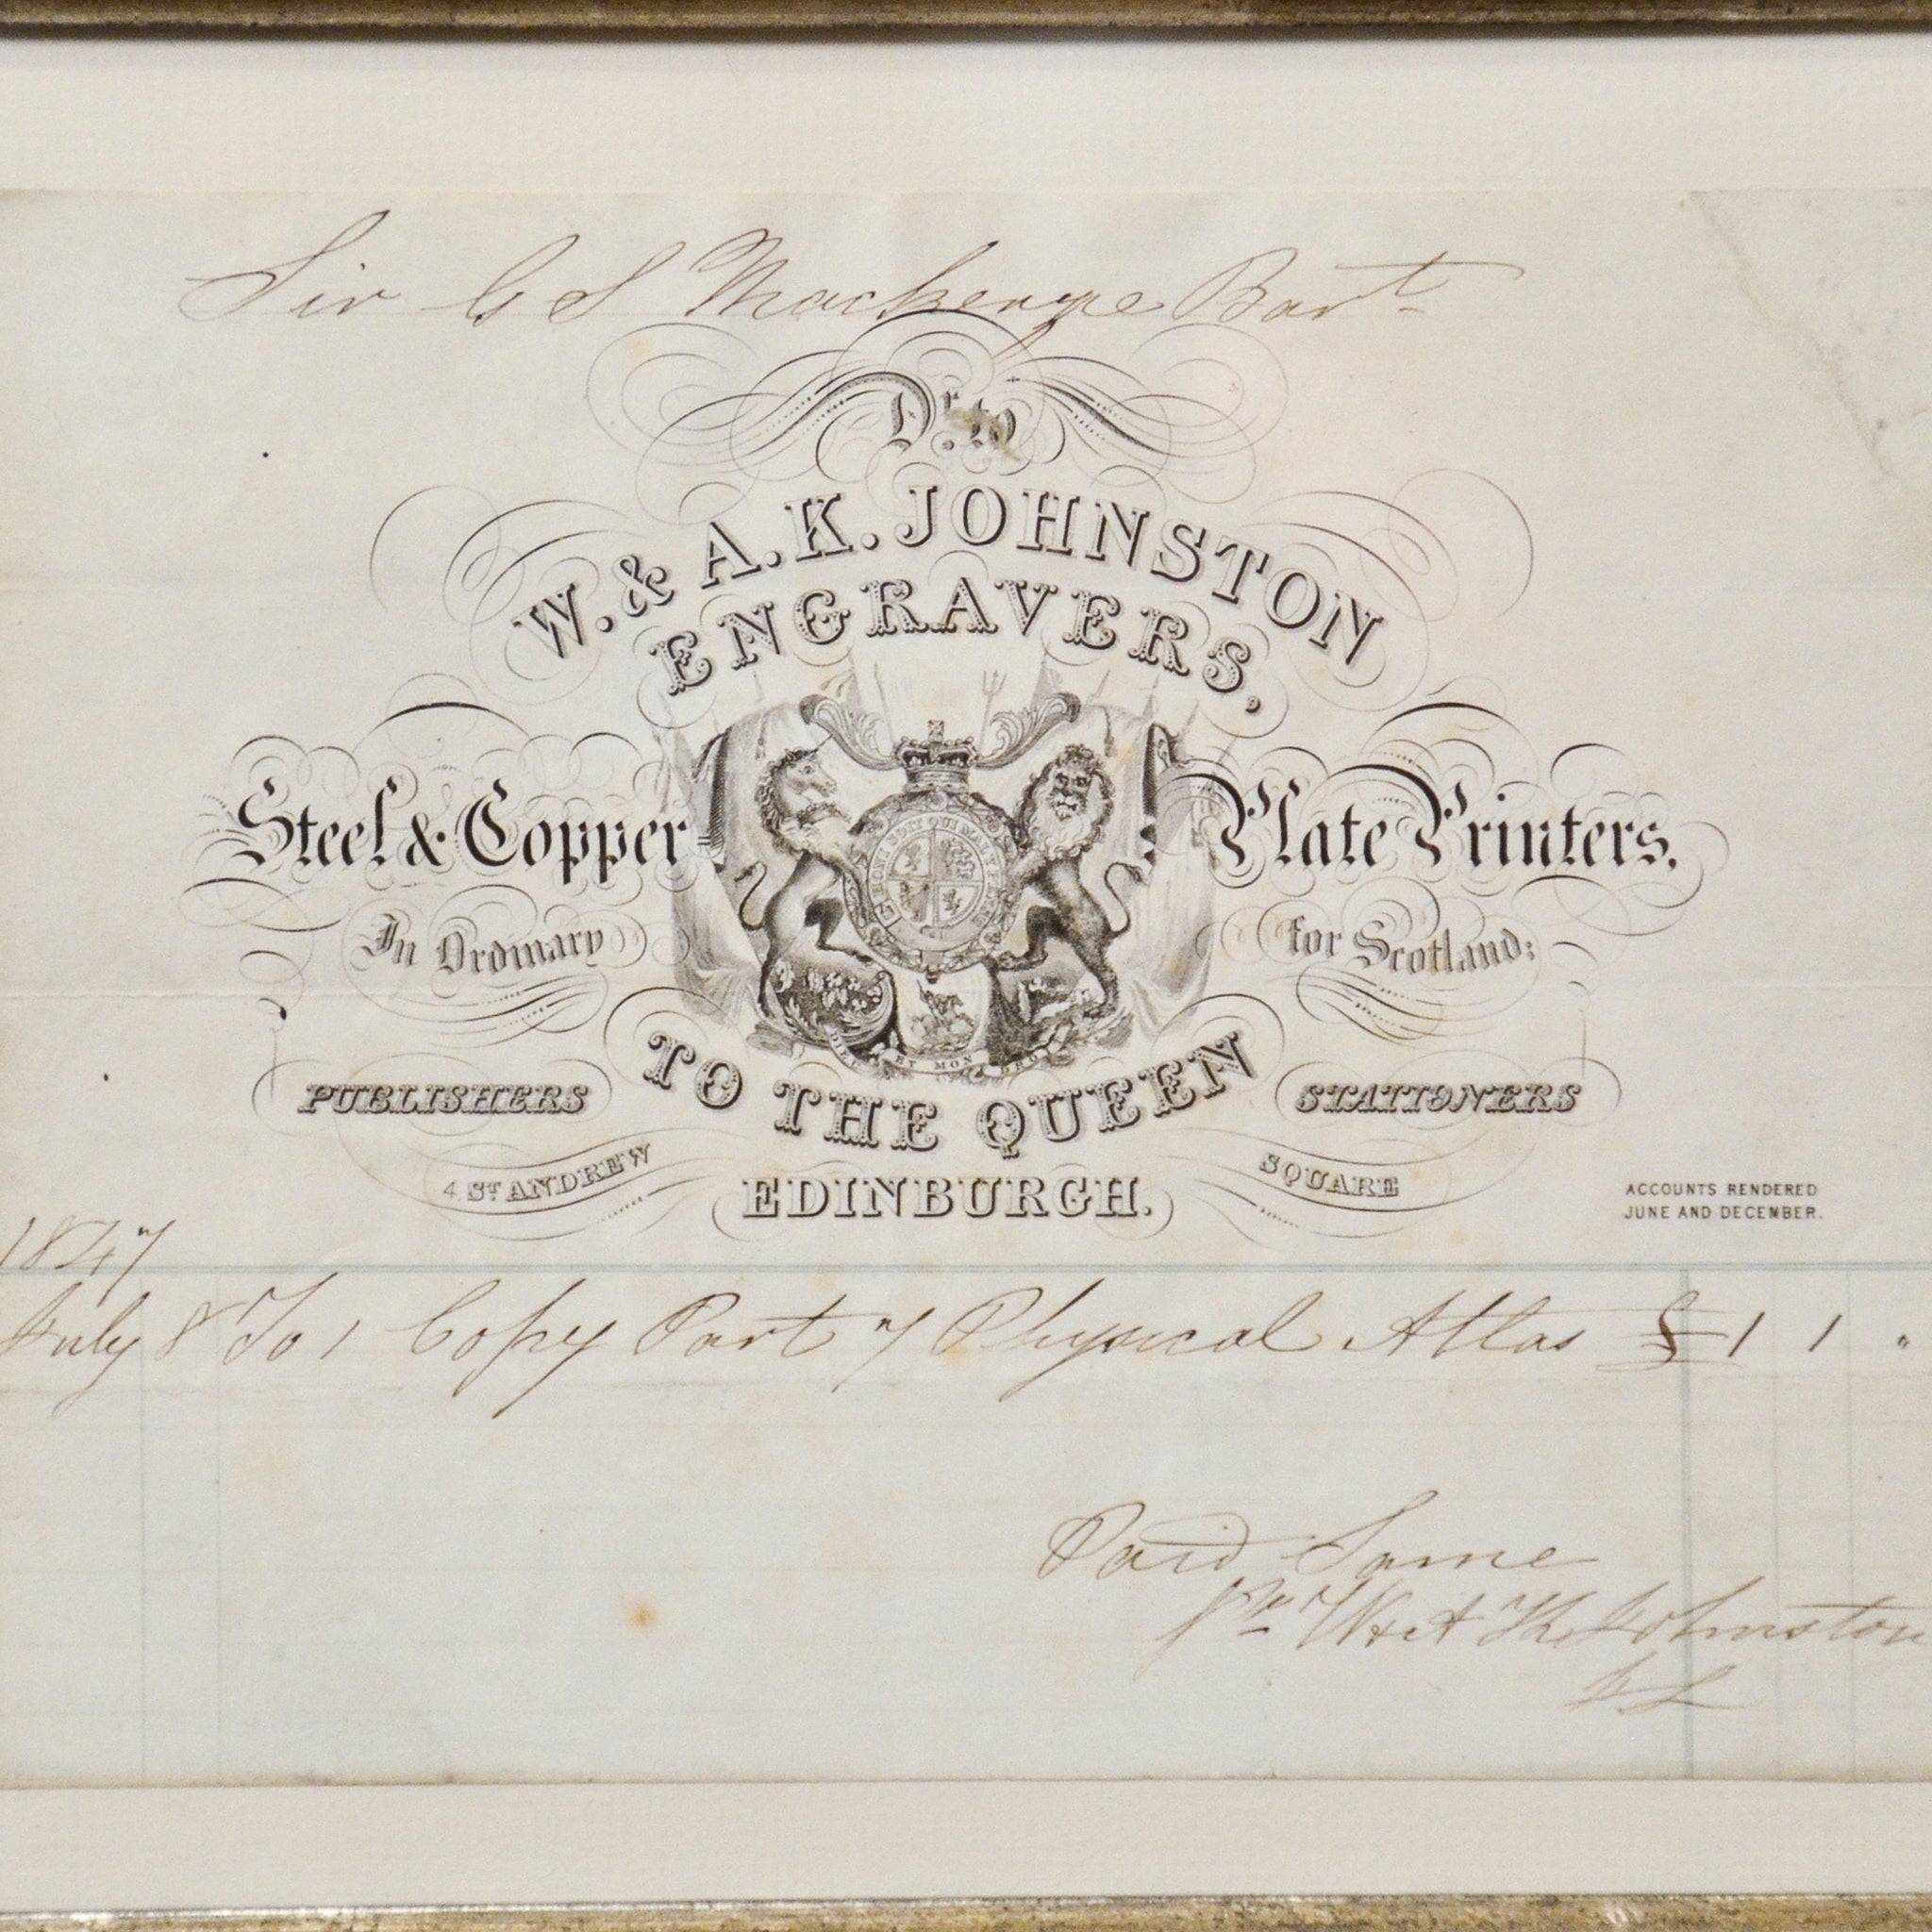 Sir G S Mackenzie Bart
Dr. to
W. & A. K. JOHNSTON
ENGRAVERS,
Steel & Copper Plate Printers,
In Ordinary for Scotland;
HONI SOIT QUI MAL Y PENSE
DIEU ET MON DROIT
TO THE QUEEN
PUBLISHERS STATIONERS
4 ST ANDREW SQUARE
EDINBURGH.
ACCOUNTS RENDERED
JUNE AND DECEMBER.
1847
July 8 To 1 Copy Part 7 Physical Atlas £ 1 1 "
Paid Same
Pr W & A K Johnston